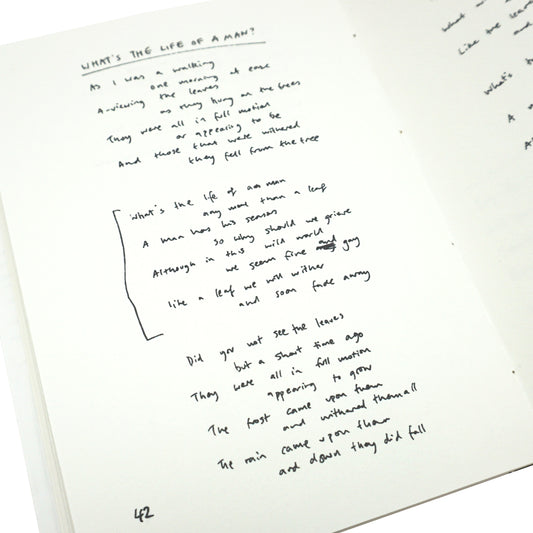 WHAT'S THE LIFE OF A MAN?
As I was a walking
one morning at ease
A-viewing the leaves
as they hung on the trees
They were all in full motion
or appearing to be
And those that were withered
they fell from the tree
What's the life of a man
any more than a leaf
A man has his season
so why should we grieve
Although in this wild world
we seem fine and gay
like a leaf we will wither
and soon fade away
Did you not see the leaves
but a short time ago
They were all in full motion
appearing to grow
The frost came upon them
and withered them all
The rain came upon them
and down they did fall
42
What
Like the leaves
and
What's t
A